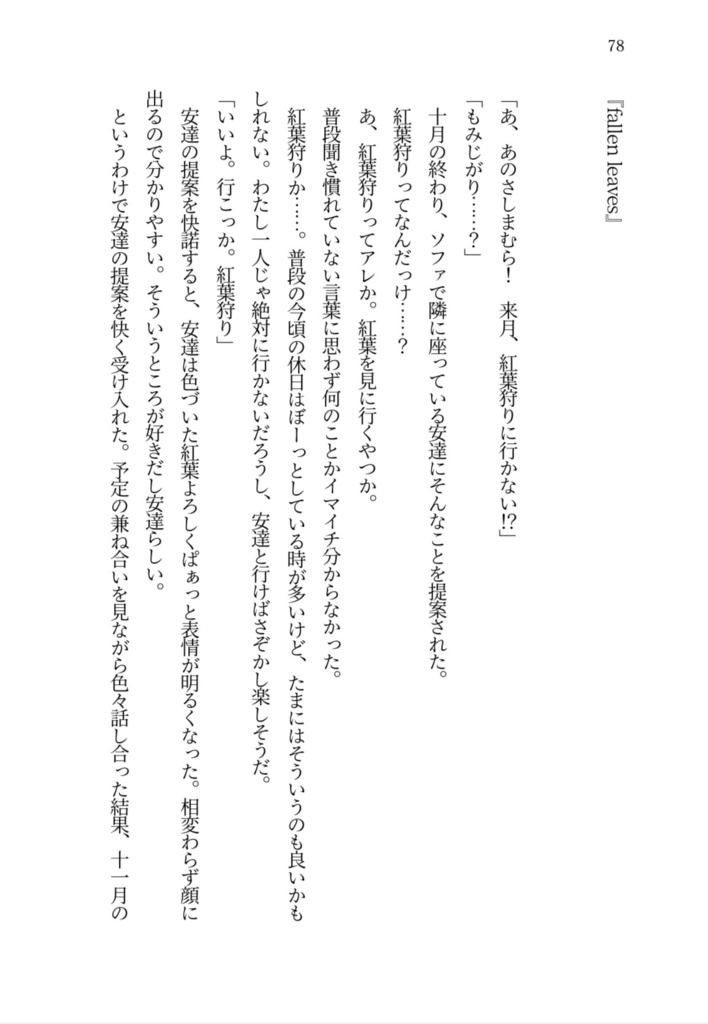 78
『fallen leaves』
「あ、あのさしまむら！　来月、紅葉狩りに行かない!?」
「もみじがり……？」
　十月の終わり、ソファで隣に座っている安達にそんなことを提案された。
　紅葉狩りってなんだっけ……？
　あ、紅葉狩りってアレか。紅葉を見に行くやつか。
　普段聞き慣れていない言葉に思わず何のことかイマイチ分からなかった。
　紅葉狩りか……。普段の今頃の休日はぼーっとしている時が多いけど、たまにはそういうのも良いかも
しれない。わたし一人じゃ絶対に行かないだろうし、安達と行けばさぞかし楽しそうだ。
「いいよ。行こっか。紅葉狩り」
　安達の提案を快諾すると、安達は色づいた紅葉よろしくぱぁっと表情が明るくなった。相変わらず顔に
出るので分かりやすい。そういうところが好きだし安達らしい。
　というわけで安達の提案を快く受け入れた。予定の兼ね合いを見ながら色々話し合った結果、十一月の